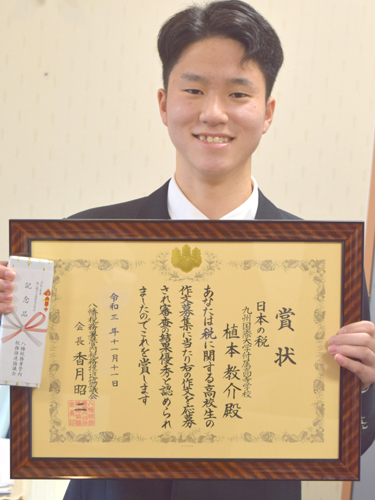 賞状
日本の税
九州国際大学付属高等学校
植本教介殿
あなたは税に関する高校生の
作文募集に当たり右の作文を応募
され審査の結果優秀と認められ
ましたのでこれを賞します
令和三年十一月十一日
八幡税務署管内税務推進協議会
会長 香月昭二
記念品
八幡税務署管内